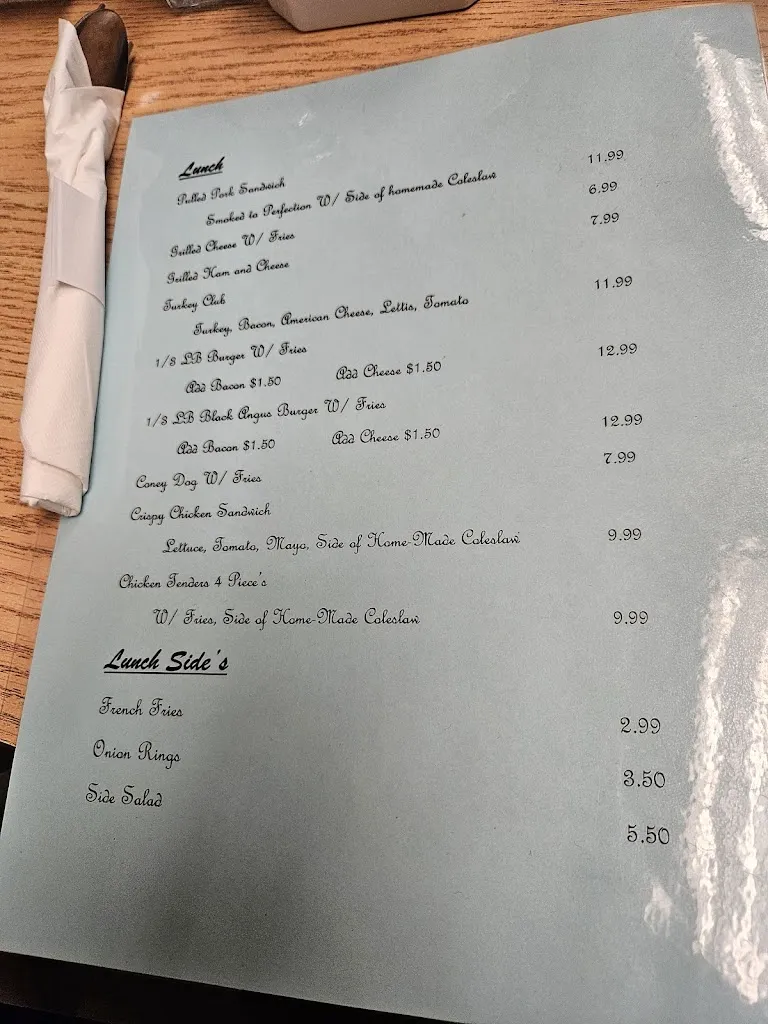 Lunch
Pulled Pork Sandwich
Smoked to Perfection W/ Side of homemade Coleslaw 11.99
Grilled Cheese W/ Fries 6.99
Grilled Ham and Cheese 7.99
Turkey Club
Turkey, Bacon, American Cheese, Lettis, Tomato 11.99
1/3 LB Burger W/ Fries 12.99
Add Bacon $1.50 Add Cheese $1.50
1/3 LB Black Angus Burger W/ Fries 12.99
Add Bacon $1.50 Add Cheese $1.50
Coney Dog W/ Fries 7.99
Crispy Chicken Sandwich
Lettuce, Tomato, Mayo, Side of Home-Made Coleslaw 9.99
Chicken Tenders 4 Piece's
W/ Fries, Side of Home-Made Coleslaw 9.99
Lunch Side's
French Fries 2.99
Onion Rings 3.50
Side Salad 5.50